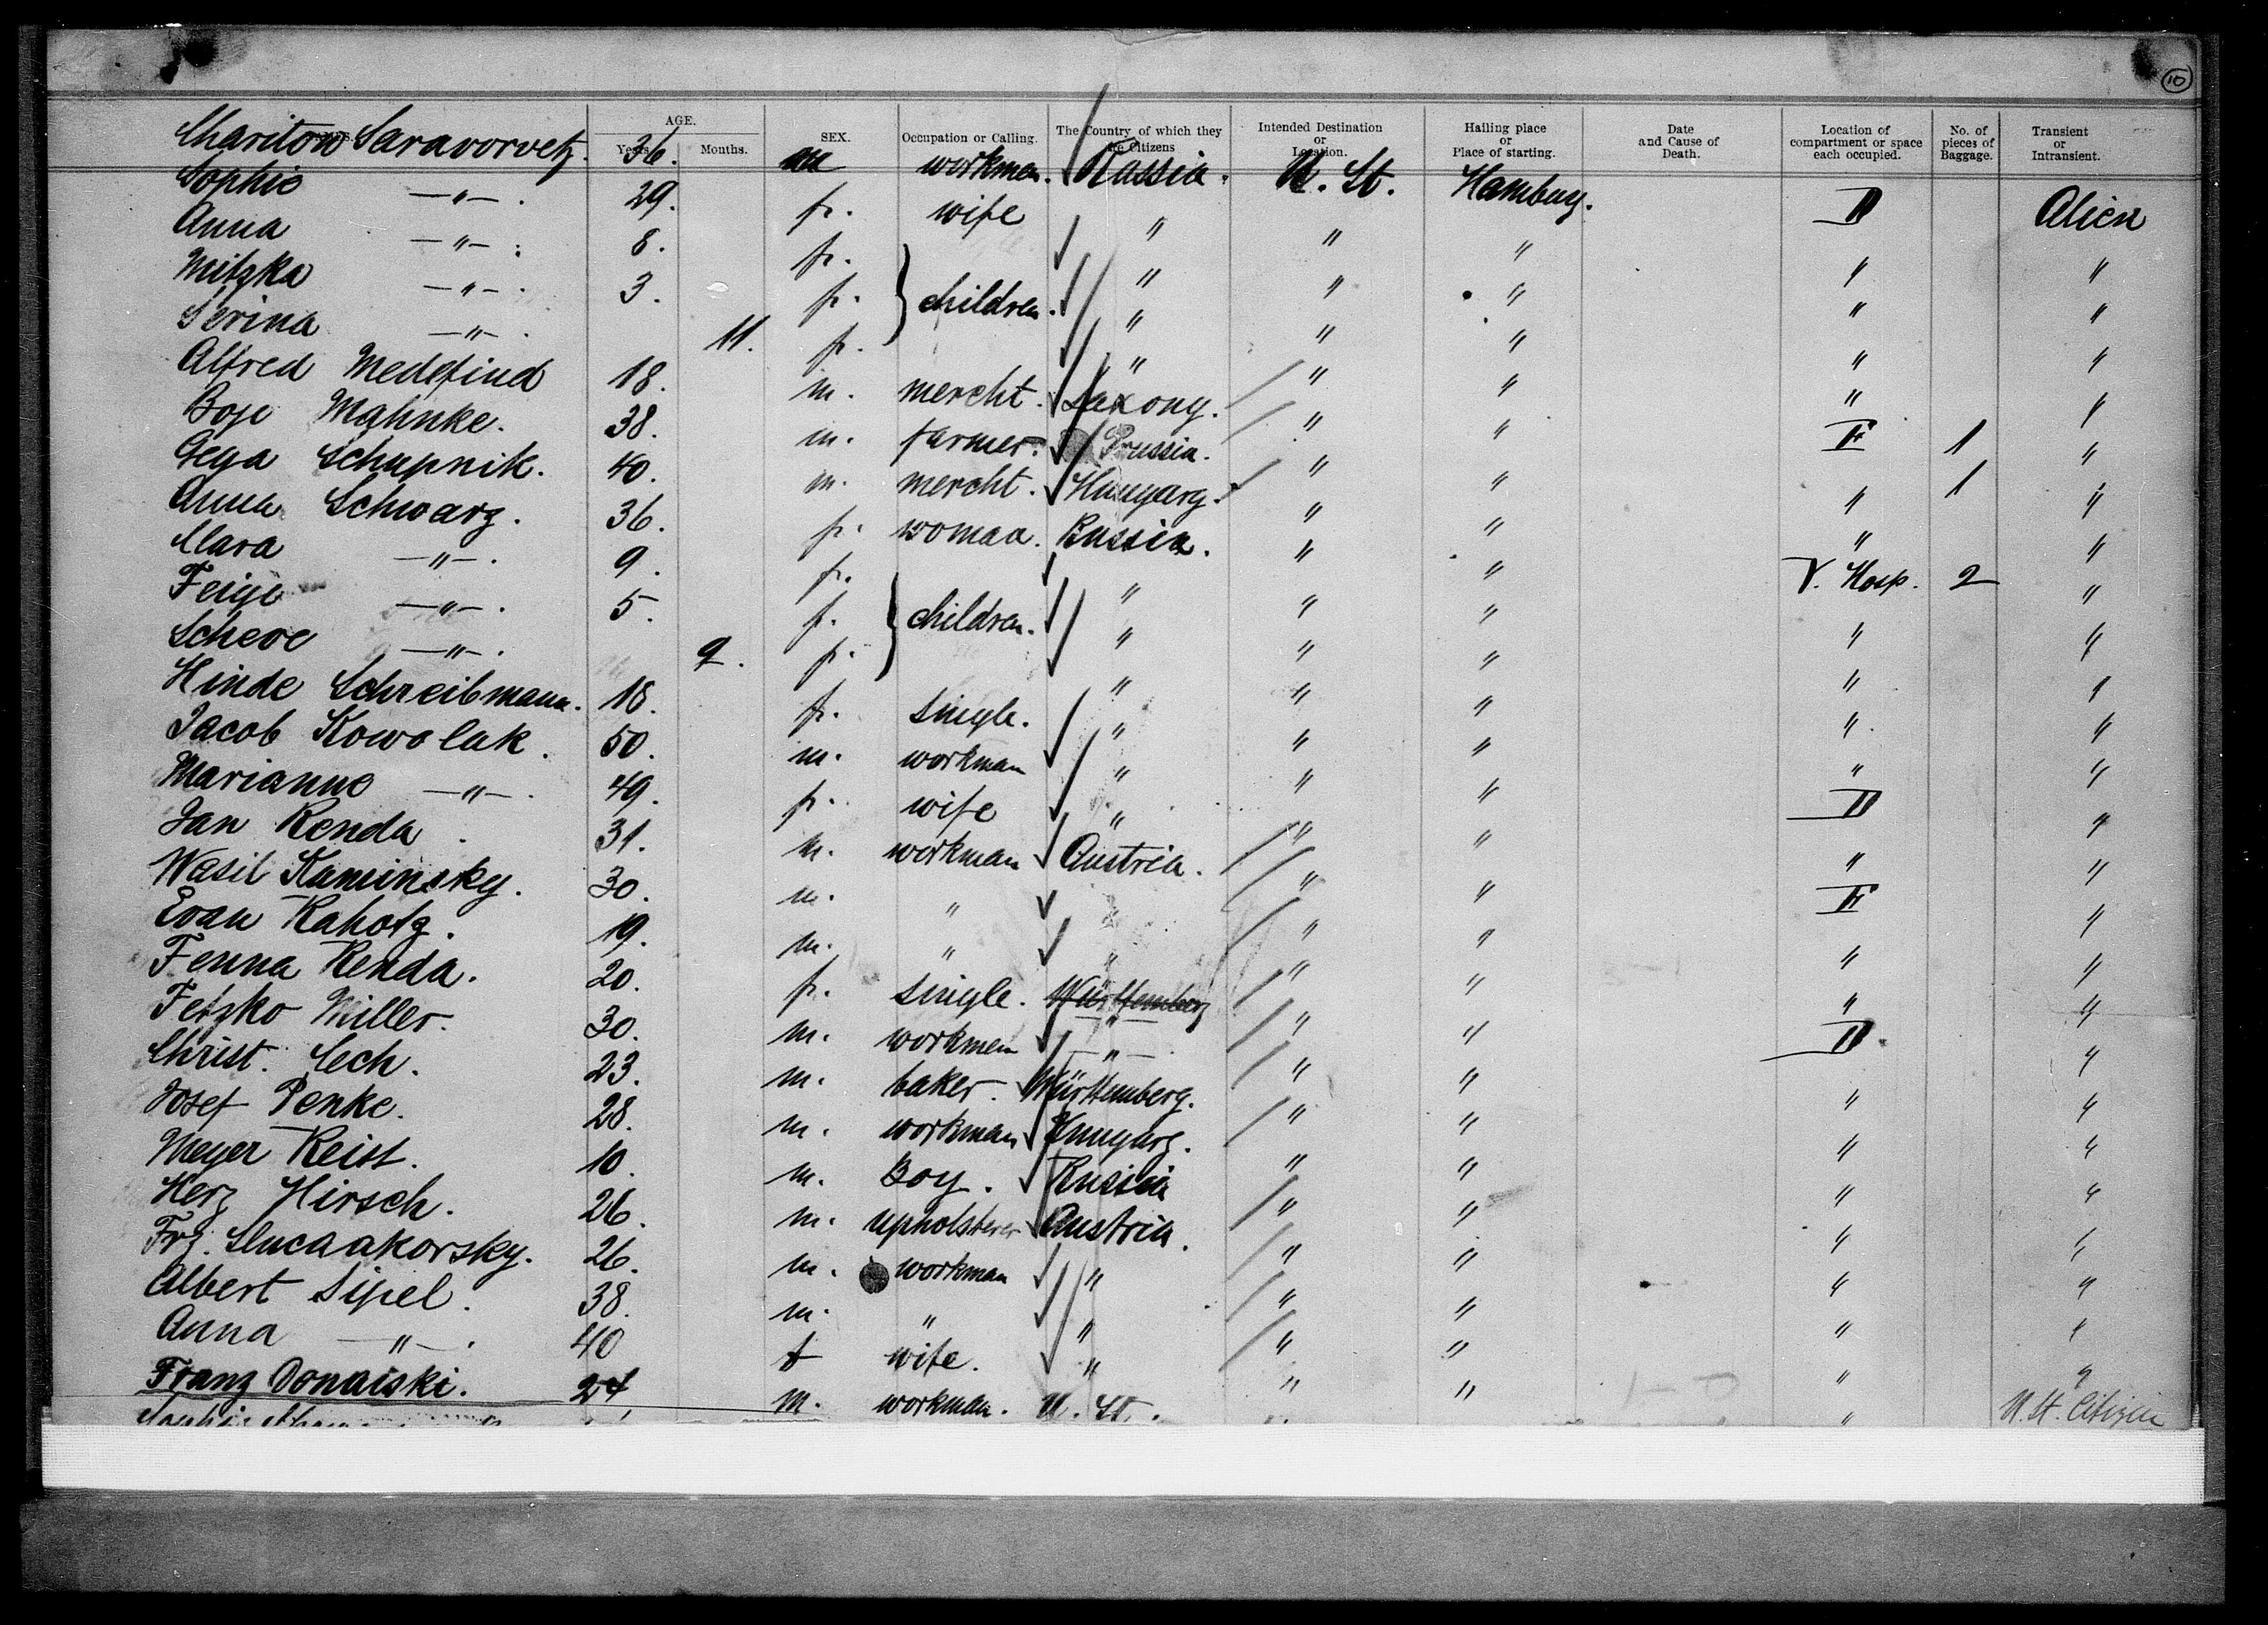 10
AGE. SEX. Occupation or Calling. The Country of which they are Citizens Intended Destination or Location. Hailing place or Place of starting. Date and Cause of Death. Location of compartment or space each occupied. No. of pieces of Baggage. Transient or Intransient.
Years. Months.
Chariton Saravorvetz. 36. m workman. Russia. U. St. Hamburg. II Alien
Sophie —"—. 29. f. wife " " " " "
Anna —"—. 8. f. children. " " " " "
Mitzka —"—. 3. f. " " " " "
Serina —"—. 11. f. " " " " "
Alfred Medefind 18. m. mercht. Saxony. " " II 1 "
Boje Mahnke. 38. m. farmer. Prussia. " " " 1 "
Gega Schupnik. 40. m. mercht. Hungary. " " " "
Anna Schwarz. 36. f. woman. Russia. " " V. Hosp. 2 "
Clara —"—. 9. f. children. " " " " "
Feige —"—. 5. f. " " " " "
Scheve —"—. 9. f. " " " " "
Hinde Schreibmann. 18. f. single. " " " " "
Jacob Kowolak. 50. m. workman " " " II "
Marianne —"—. 49. f. wife " " " " "
Jan Renda. 31. m. workman Austria. " " "
Wasil Kaminsky. 30. m. " " " " " "
Evan Rahotz. 19. m. " " " " " "
Fenna Renda. 20. f. single. Württemberg —"— " " II "
Fetzko Miller. 30. m. workman —"—. " " " "
Christ. Cech. 23. m. baker. Württemberg. " " " "
Josef Penke. 28. m. workman Hungary. " " " "
Meyer Reist. 10. m. Boy. Russia " " " "
Herz Hirsch. 26. m. upholsterer Austria. " " " "
Frz. 26. m. workman " " " " "
Albert Sipel. 38. m. " " " " " "
Anna —"—. 40 f wife. " " " " "
Franz Donaiski. 24 m. workman. U. St. " " " U. St. Citizen